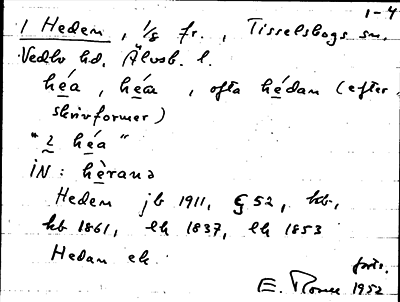 1-4
1 Hedem, 1/8 fr., Tisselskogs sn.
Vedbo hd. Älvsb. l.
héa, héa, ofta hédan (efter
skrivformer)
"2 héa"
iN: hèrana
Hedem jb 1911, G 52, kb,
kb 1861, lh 1837, lh 1853
Hedan ek.
forts.
E. 1952